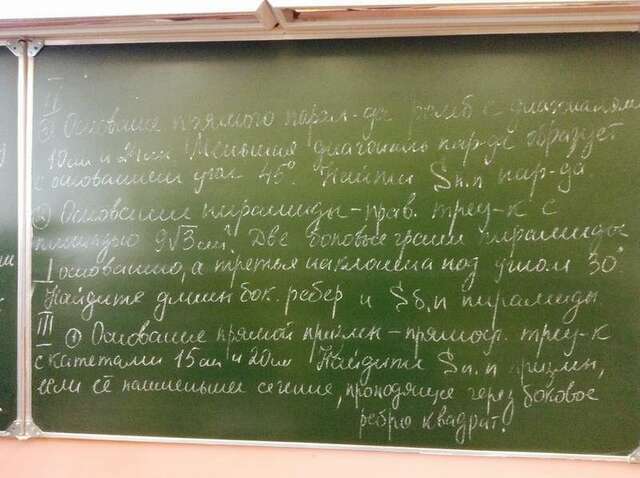 II
3) Основание прямого парал-да ромб с диагоналями
10см и 24см Меньшая диагональ пар-да образует
с основанием угол 45° Найти Sп.п пар-да.
Основание пирамиды – прав. треу-к с
площадью 9√3см². Две боковые грани пирамиды
⊥ основанию, а третья наклонена под углом 30°
Найдите длины бок. ребер и Sб.п пирамиды
III ① Основание прямой призмы – прямоуг. треу-к
с катетами 15см и 20см Найдите Sп.п призмы,
если её наименьшее сечение, проходящее через боковое
ребро квадрат.